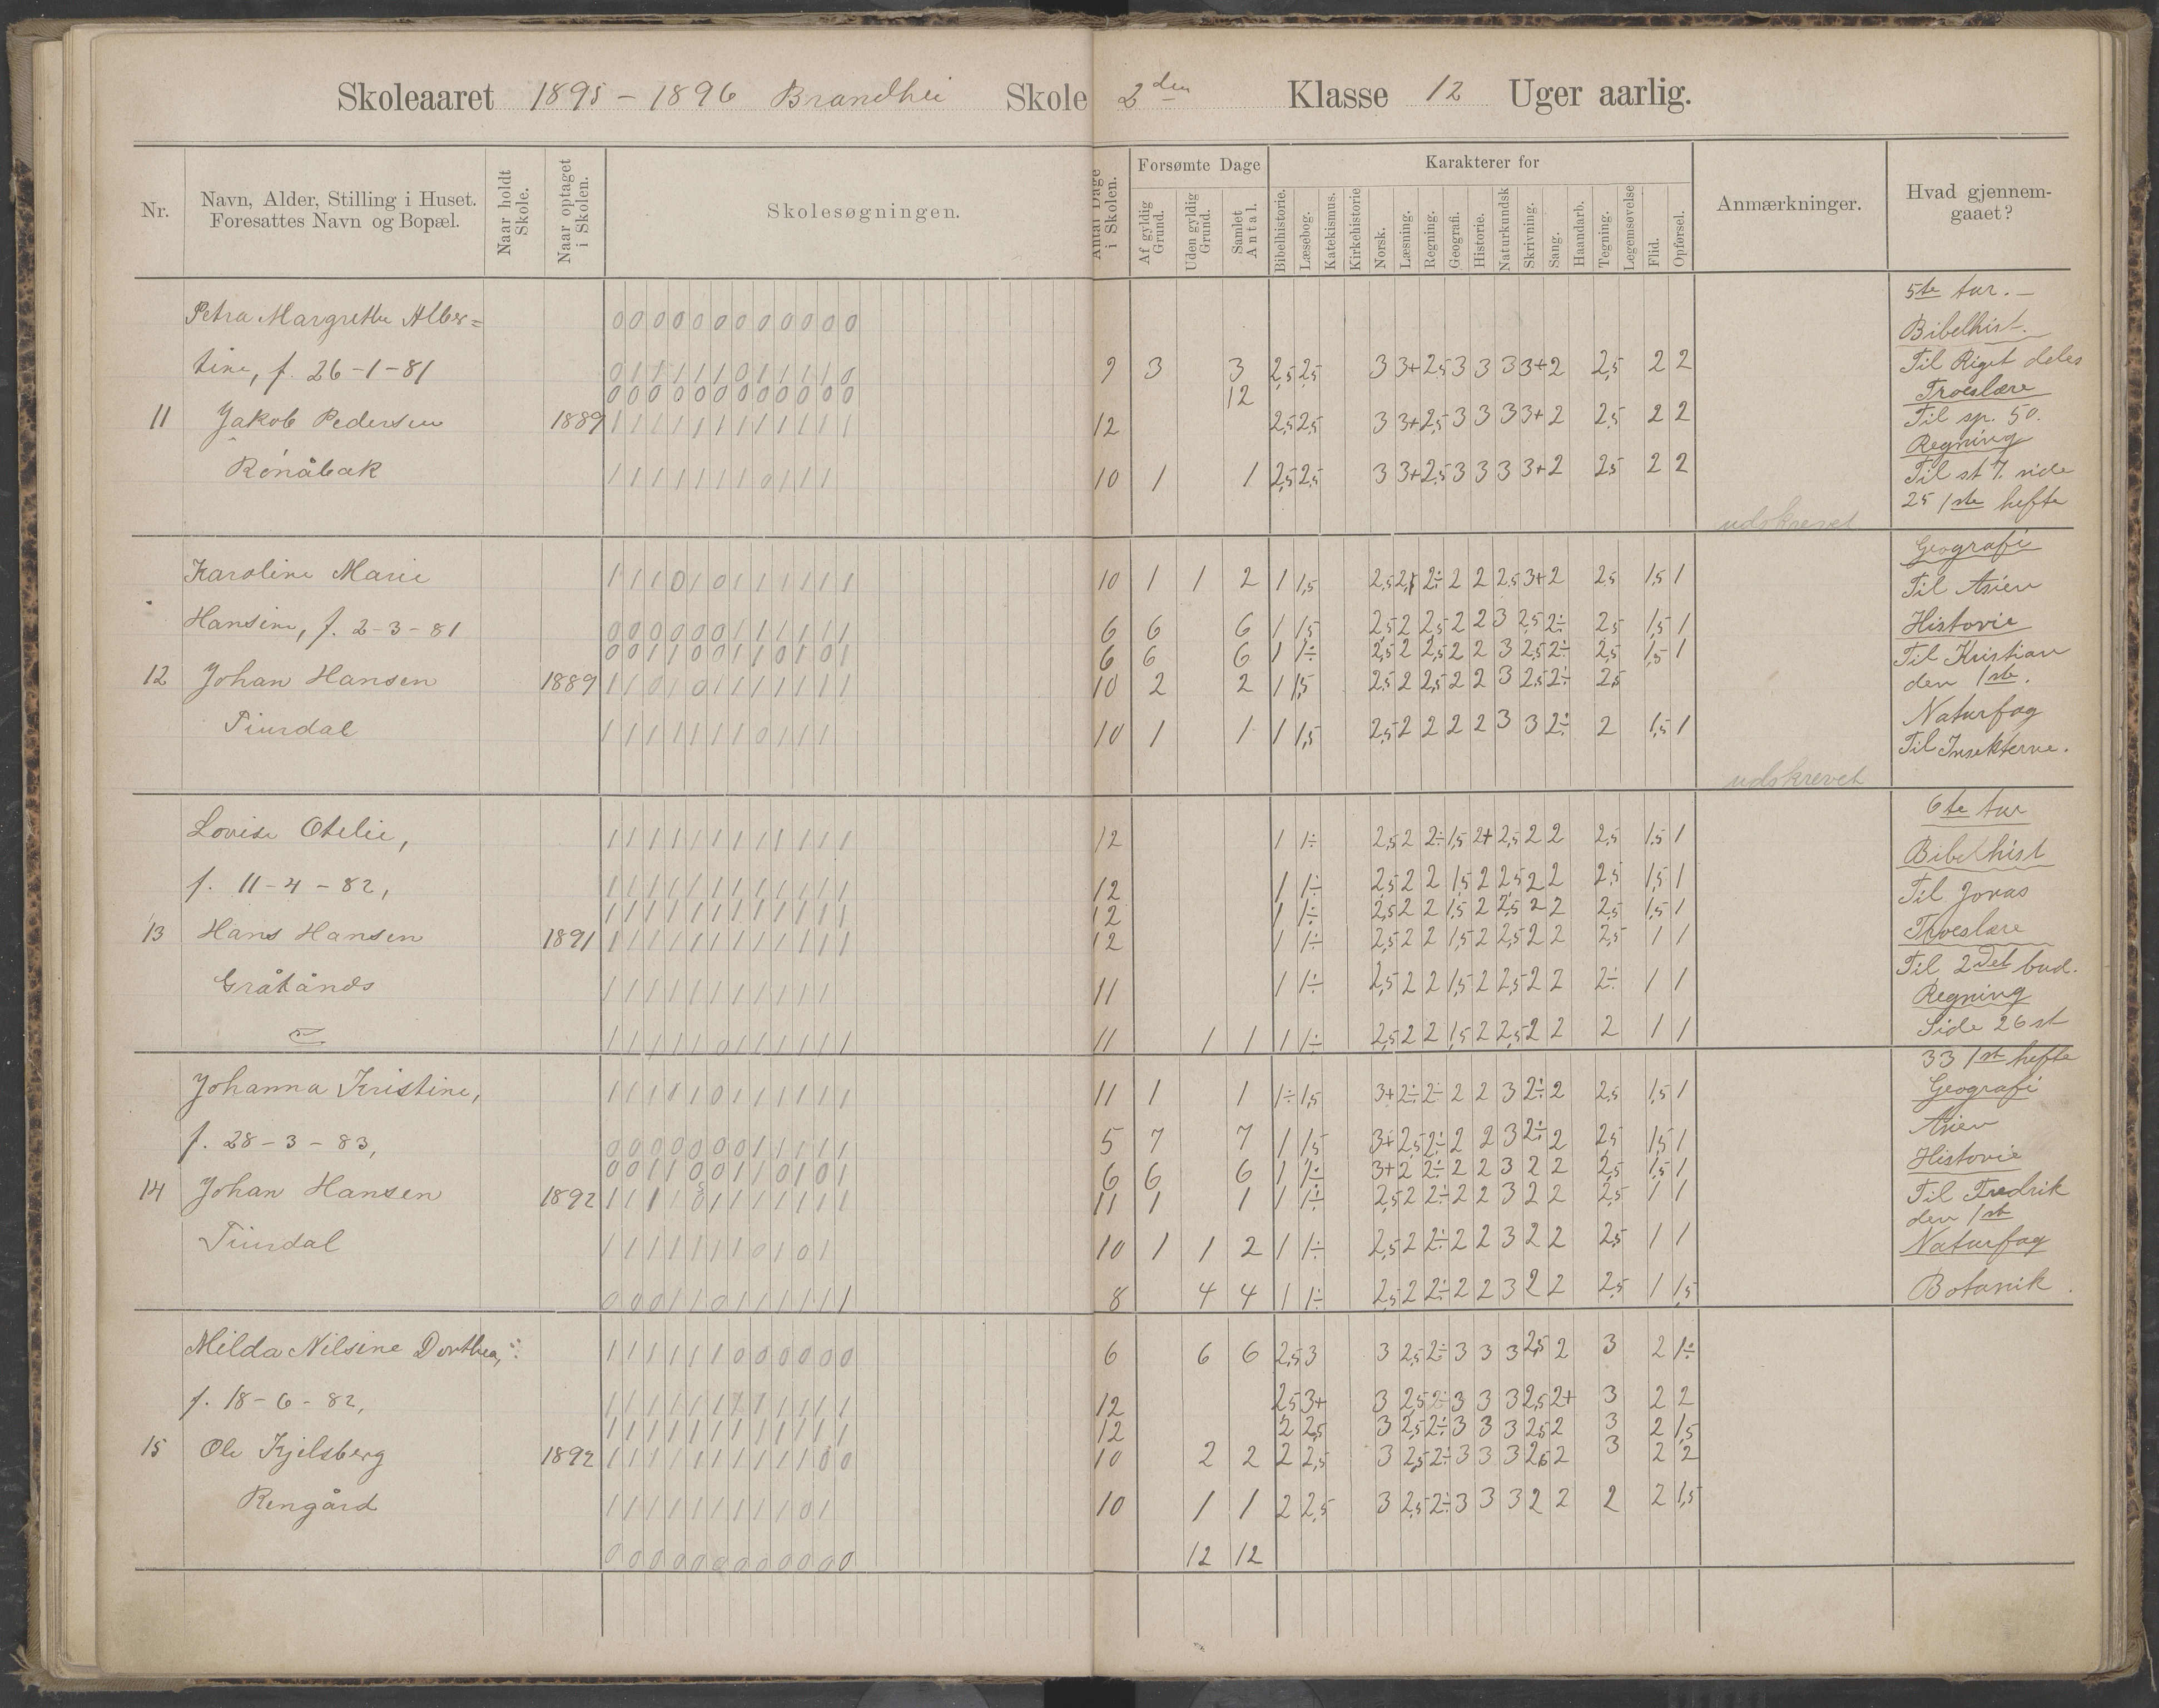 Skoleaaret 1895 - 1896 Brandhei Skole 2den Klasse 12 Uger aarlig.
Nr.
Navn, Alder, Stilling i Huset.
Foresattes Navn og Bopæl.
Naar holdt
Skole.
Naar optaget
i Skolen.
Skolesøgningen.
Antal Dage
i Skolen.
Forsømte Dage
Af gyldig
Grund.
Uden gyldig
Grund.
Samlet
Antal.
Karakterer for
Bibelhistorie.
Læsebog.
Katekismus.
Kirkehistorie
Norsk.
Læsning.
Regning.
Geografi.
Historie.
Naturkundsk
Skrivning.
Sang.
Haandarb.
Tegning.
Legemsøvelse
Flid.
Opførsel.
Anmærkninger.
Hvad gjennem-
gaaet?
Petra Margrethe Alber= 0 0 0 0 0 0 0 0 0 0 0 0
tine, f. 26-1-81 0 1 1 1 1 1 0 1 1 1 1 0 9 3 3 2,5 2,5 3 3+ 2,5 3 3 3 3+ 2 2,5 2 2
0 0 0 0 0 0 0 0 0 0 0 0 12
11 Jakob Pedersen 1889 1 1 1 1 1 1 1 1 1 1 1 1 12 2,5 2,5 3 3+ 2,5 3 3 3 3+ 2 2,5 2 2
Rónåbak 1 1 1 1 1 1 1 0 1 1 1 10 1 1 2,5 2,5 3 3+ 2,5 3 3 3 3+ 2 2,5 2 2
udskrevet
Karoline Marie 1 1 1 0 1 0 1 1 1 1 1 1 10 1 1 2 1 1,5 2,5 2,1 2÷ 2 2 2,5 3+ 2 2,5 1,5 1
Hansine, f. 2-3-81 0 0 0 0 0 0 1 1 1 1 1 1 6 6 6 1 1,5 2,5 2 2,5 2 2 3 2,5 2÷ 2,5 1,5 1
0 0 1 1 0 0 1 1 0 1 0 1 6 6 6 1 1÷ 2,5 2 2,5 2 2 3 2,5 2÷ 2,5 1,5 1
12 Johan Hansen 1889 1 1 0 1 0 1 1 1 1 1 1 1 10 2 2 1 1,5 2,5 2 2,5 2 2 3 2,5 2÷ 2,5
Tiurdal 1 1 1 1 1 1 1 0 1 1 1 10 1 1 1 1,5 2,5 2 2 2 2 3 3 2÷ 2 1,5 1
udskrevet
Lovise Otelie, 1 1 1 1 1 1 1 1 1 1 1 1 12 1 1÷ 2,5 2 2÷ 1,5 2+ 2,5 2 2 2,5 1,5 1
f. 11-4-82, 1 1 1 1 1 1 1 1 1 1 1 1 12 1 1÷ 2,5 2 2 1,5 2 2,5 2 2 2,5 1,5 1
1 1 1 1 1 1 1 1 1 1 1 1 12 1 1÷ 2,5 2 2 1,5 2 2,5 2 2 2,5 1,5 1
13 Hans Hansen 1891 1 1 1 1 1 1 1 1 1 1 1 1 12 1 1÷ 2,5 2 2 1,5 2 2,5 2 2 2,5 1 1
Gråtånds 1 1 1 1 1 1 1 1 1 1 1 11 1 1÷ 2,5 2 2 1,5 2 2,5 2 2 2÷ 1 1
1 1 1 1 1 0 1 1 1 1 1 1 11 1 1 1 1÷ 2,5 2 2 1,5 2 2,5 2 2 2 1 1
Johanna Kristine, 1 1 1 1 1 0 1 1 1 1 1 1 11 1 1 1÷ 1,5 3+ 2÷ 2÷ 2 2 3 2÷ 2 2,5 1,5 1
f. 28-3-83, 0 0 0 0 0 0 0 1 1 1 1 1 5 7 7 1 1,5 3+ 2,5 2÷ 2 2 3 2÷ 2 2,5 1,5 1
0 0 1 1 0 0 1 1 0 1 0 1 6 6 6 1 1÷ 3+ 2 2÷ 2 2 3 2 2 2,5 1,5 1
14 Johan Hansen 1892 1 1 1 1 0 1 1 1 1 1 1 1 11 1 1 1 1÷ 2,5 2 2÷ 2 2 3 2 2 2,5 1 1
Tiurdal 1 1 1 1 1 1 1 0 1 0 1 10 1 1 2 1 1÷ 2,5 2 2÷ 2 2 3 2 2 2,5 1 1
0 0 0 1 1 0 1 1 1 1 1 1 8 4 4 1 1÷ 2,5 2 2÷ 2 2 3 2 2 2,5 1 1,5
Milda Nilsine Dorthea, 1 1 1 1 1 1 0 0 0 0 0 0 6 6 6 2,5 3 3 2,5 2÷ 3 3 3 2,5 2 3 2 1÷
f. 18-6-82, 1 1 1 1 1 1 1 1 1 1 1 1 12 2,5 3+ 3 2,5 2÷ 3 3 3 2,5 2+ 3 2 2
1 1 1 1 1 1 1 1 1 1 1 1 12 2 2,5 3 2,5 2÷ 3 3 3 2,5 2 3 2 1,5
15 Ole Kjelsberg 1892 1 1 1 1 1 1 1 1 1 1 0 0 10 2 2 2 2,5 3 2,5 2÷ 3 3 3 2,5 2 3 2 2
Rengård 1 1 1 1 1 1 1 1 1 0 1 10 1 1 2 2,5 3 2,5 2÷ 3 3 3 2 2 2 2 1,5
0 0 0 0 0 0 0 0 0 0 0 0 12 12
5te tur. -
Bibelhist.
Til Riget deles
Troeslære
Til sp. 50.
Regning
Til st 7. side
25 1ste hefte
Geografi
Til Asien
Historie
Til Kristian
den 1ste.
Naturfag
Til Insekterne.
6te tur
Bibelhist
Til Jonas
Troeslære
Til 2det bud.
Regning
Side 26 st
33 1st hefte
Geografi
Asien
Historie
Til Fredrik
den 1st
Naturfag
Botanik.